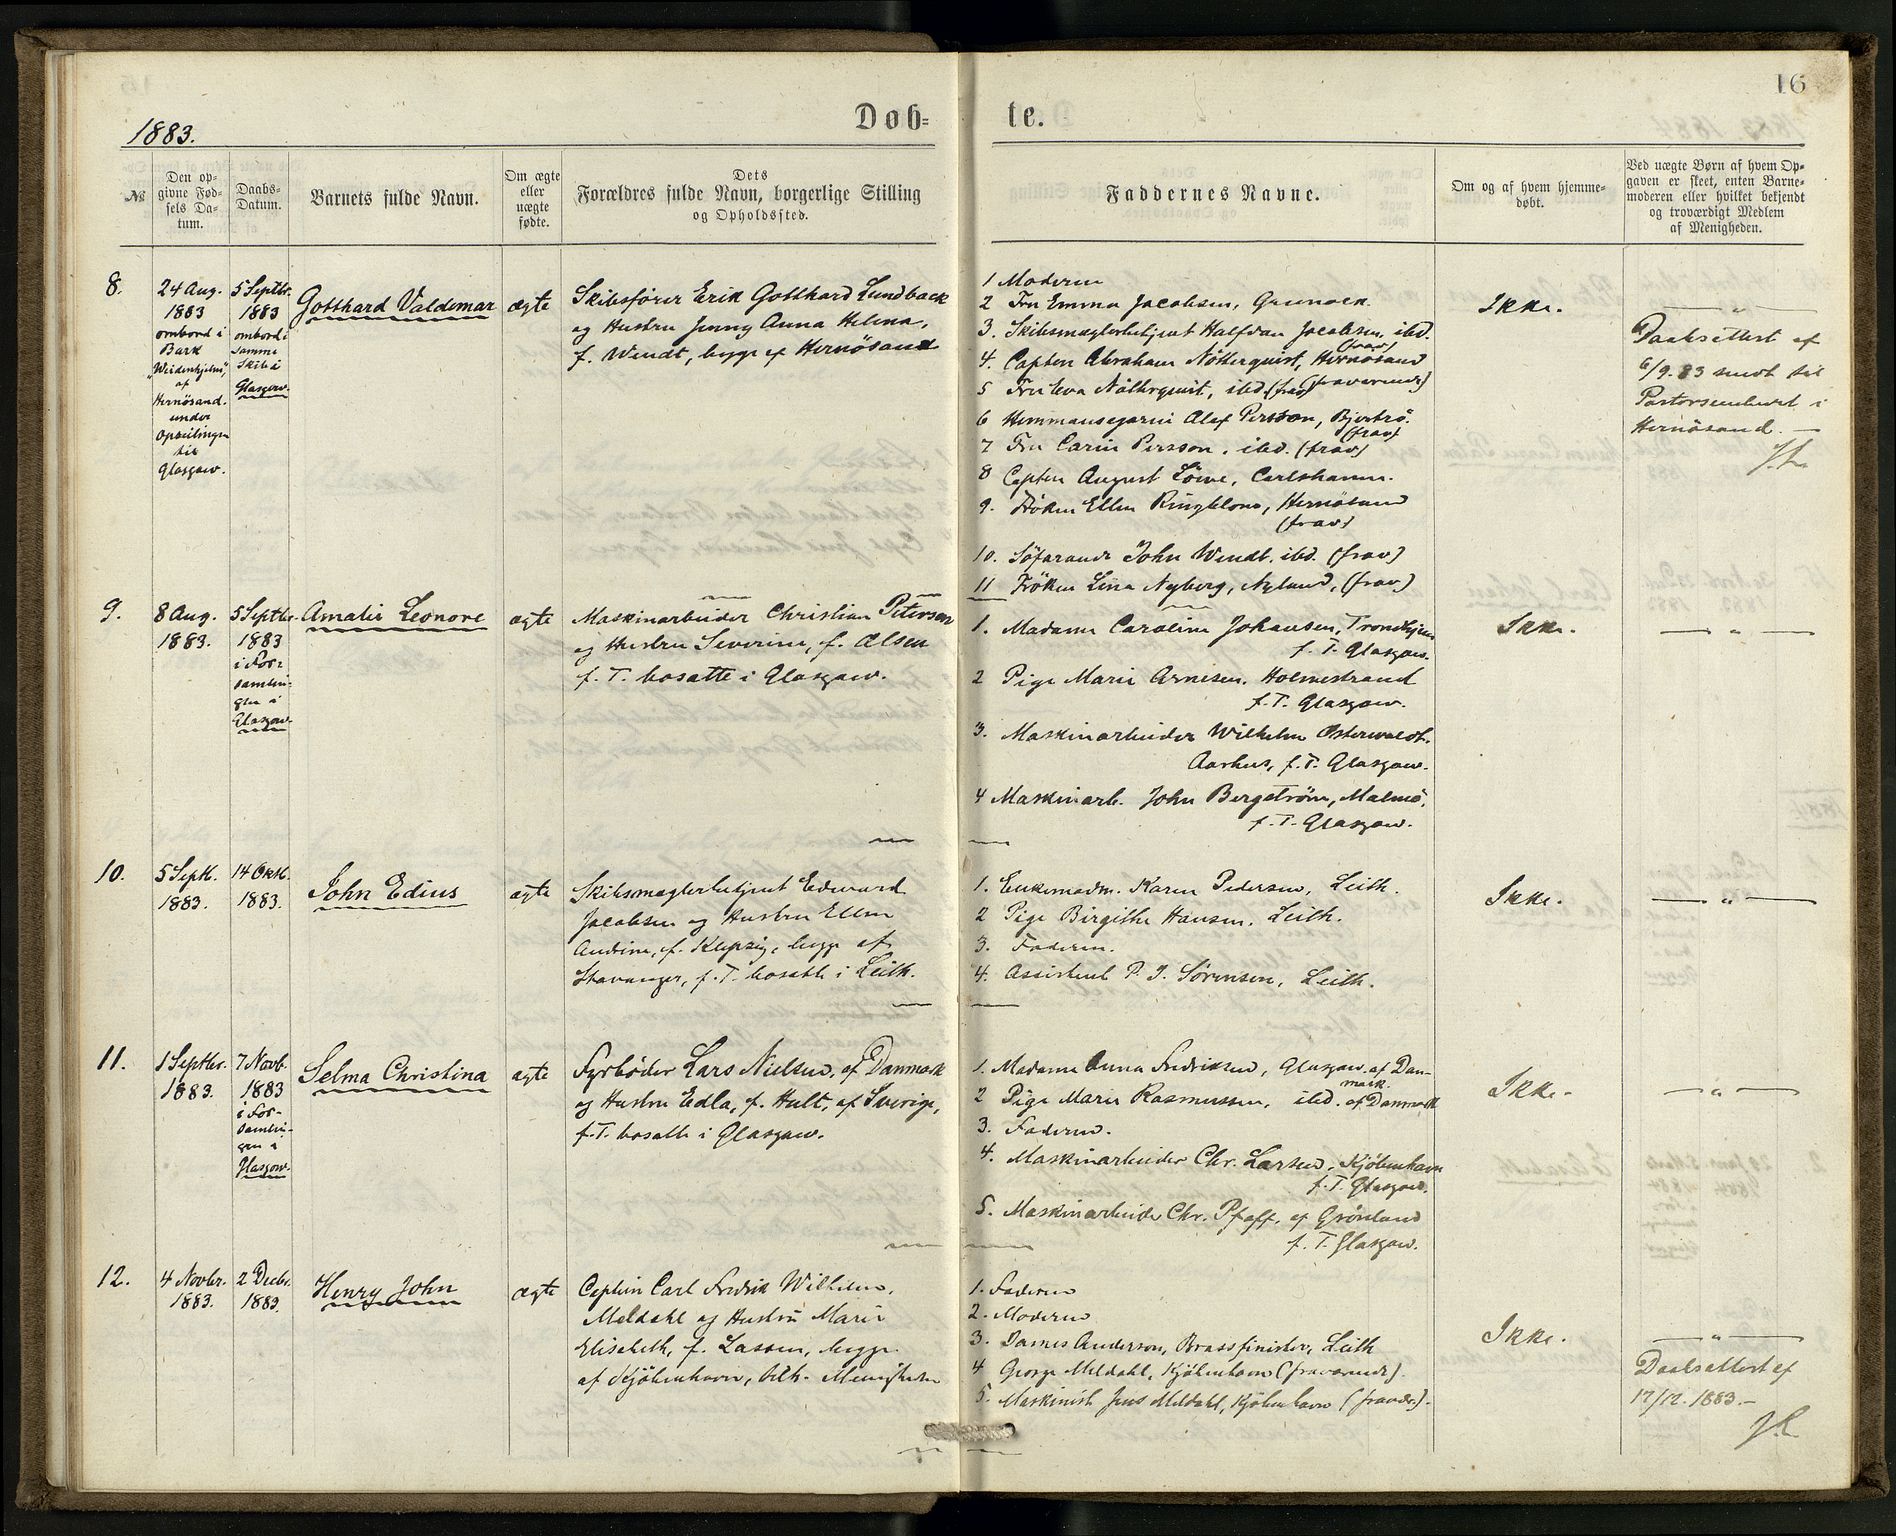 16
1883.
Dob-
te.
№
Den op-
givne Fød-
sels Da-
tum.
Daabs-
Datum.
Barnets fulde Navn.
Om ægte
eller
uægte
fødte.
Dets
Forældres fulde Navn, borgerlige Stilling
og Opholdssted.
Faddernes Navne.
Om og af hvem hjemme-
døbt.
Ved uægte Børn af hvem Op-
gaven er skeet, enten Barne-
moderen eller hvilket bekjendt
og troværdigt Medlem
af Menigheden.
8.
24 Aug.
1883
ombord i
Bark
af
Hernösand
under
til
Glasgow.
5 Septbr.
1883
ombord i
samme
Skib i
Glasgow.
Gotthard Valdemar
ægte
Skibsfører Erik Gotthard Lundback
og Hustru Jenny Anna Helena,
f. Wendt, begge af Hernösand
1 Moderen
2 Fru Emma Jacobsen, Greenock.
3. Skibsmæglerbetjent Halfdan Jacobsen, ibd.
(frav)
4. Capten Abraham Nötterquist, Hernösand
(fraværende)
5 Fru Eva Nötterquist, ibd. (frav)
6 Hemmansegaren Olof Persson, Bjertrå.
(frav)
7 Fru Carin Persson, ibd. (frav)
8 Capten August Löwe, Carlshamn.
9. Fröken Ellen Ringblom, Hernösand
(frav)
10. Söfarande John Wendt. ibd. (frav)
11 Fröken Lina Nyberg, Nyland, (frav)
Ikke.
— " —
Daabsattest af
6/9. 83 sendt til
Pastorsembetet i
Hernösand. —
9.
8 Aug.
1883.
5 Septbr.
1883
i For-
samlin-
gen i
Glasgow.
Amalie Leonore
ægte
Maskinarbeider Christian Peterson
og Hustru Severine, f. Olsen
f. T. bosatte i Glasgow.
1. Madame Caroline Johansen, Trondhjem
f. T. Glasgow.
2 Pige Marie Arnesen. Holmestrand
f. T. Glasgow.
3. Maskinarbeider Wilhelm Osterwaldt.
Aarhus, f. T. Glasgow.
4 Maskinarb. John Bergström, Malmö.
f. T. Glasgow.
Ikke.
— " —
10.
5 Septb.
1883.
14 Oktb.
1883.
John Edius
ægte
Skibsmæglerbetjent Edward
Jacobsen og Hustru Ellen
Andrine, f. Kleipzig, begge af
Stavanger, f. T. bosatte i Leith.
1. Enkemadm. Karen Pedersen, Leith.
2 Pige Birgithe Hansen. Leith.
3. Faderen.
4. Assistent P. J. Sørensen, Leith.
Ikke.
— " —
11.
1 Septbr.
1883.
7 Novb.
1883
i For-
samlin-
gen i
Glasgow.
Selma Christina
ægte
Fyrbøder Lars Nielsen, af Danmark
og Hustru Edla, f. Hult, af Sverige,
f. T. bosatte i Glasgow.
1. Madame Anna Fredriksen, Glasgow. af Dan-
mark.
2 Pige Marie Rasmussen, ibd. af Danmark
3. Faderen.
4. Maskinarbeider Chr. Larsen, Kjöbenhavn
f. T. Glasgow.
5. Maskinarbeider Chr. Pfaff, af Grönland
f. T. Glasgow.
Ikke.
— " —
12.
4 Novbr.
1883.
2 Decbr.
1883.
Henry John
ægte
Captein Carl Fredrik Wilhelm.
Meldahl og Hustru Marie
Elisabeth, f. Lassen, begge
af Kjöbenhavn, Menigheden
1. Faderen
2. Moderen
3. James Anderson, Brassfinisher, Leith
4 George Meldahl, Kjöbenhavn (fraværende).
5. Maskinist Jens Meldahl, Kjöbenhavn (fravær.).
Ikke.
— " —
Daabsattest af
17/12. 1883. —